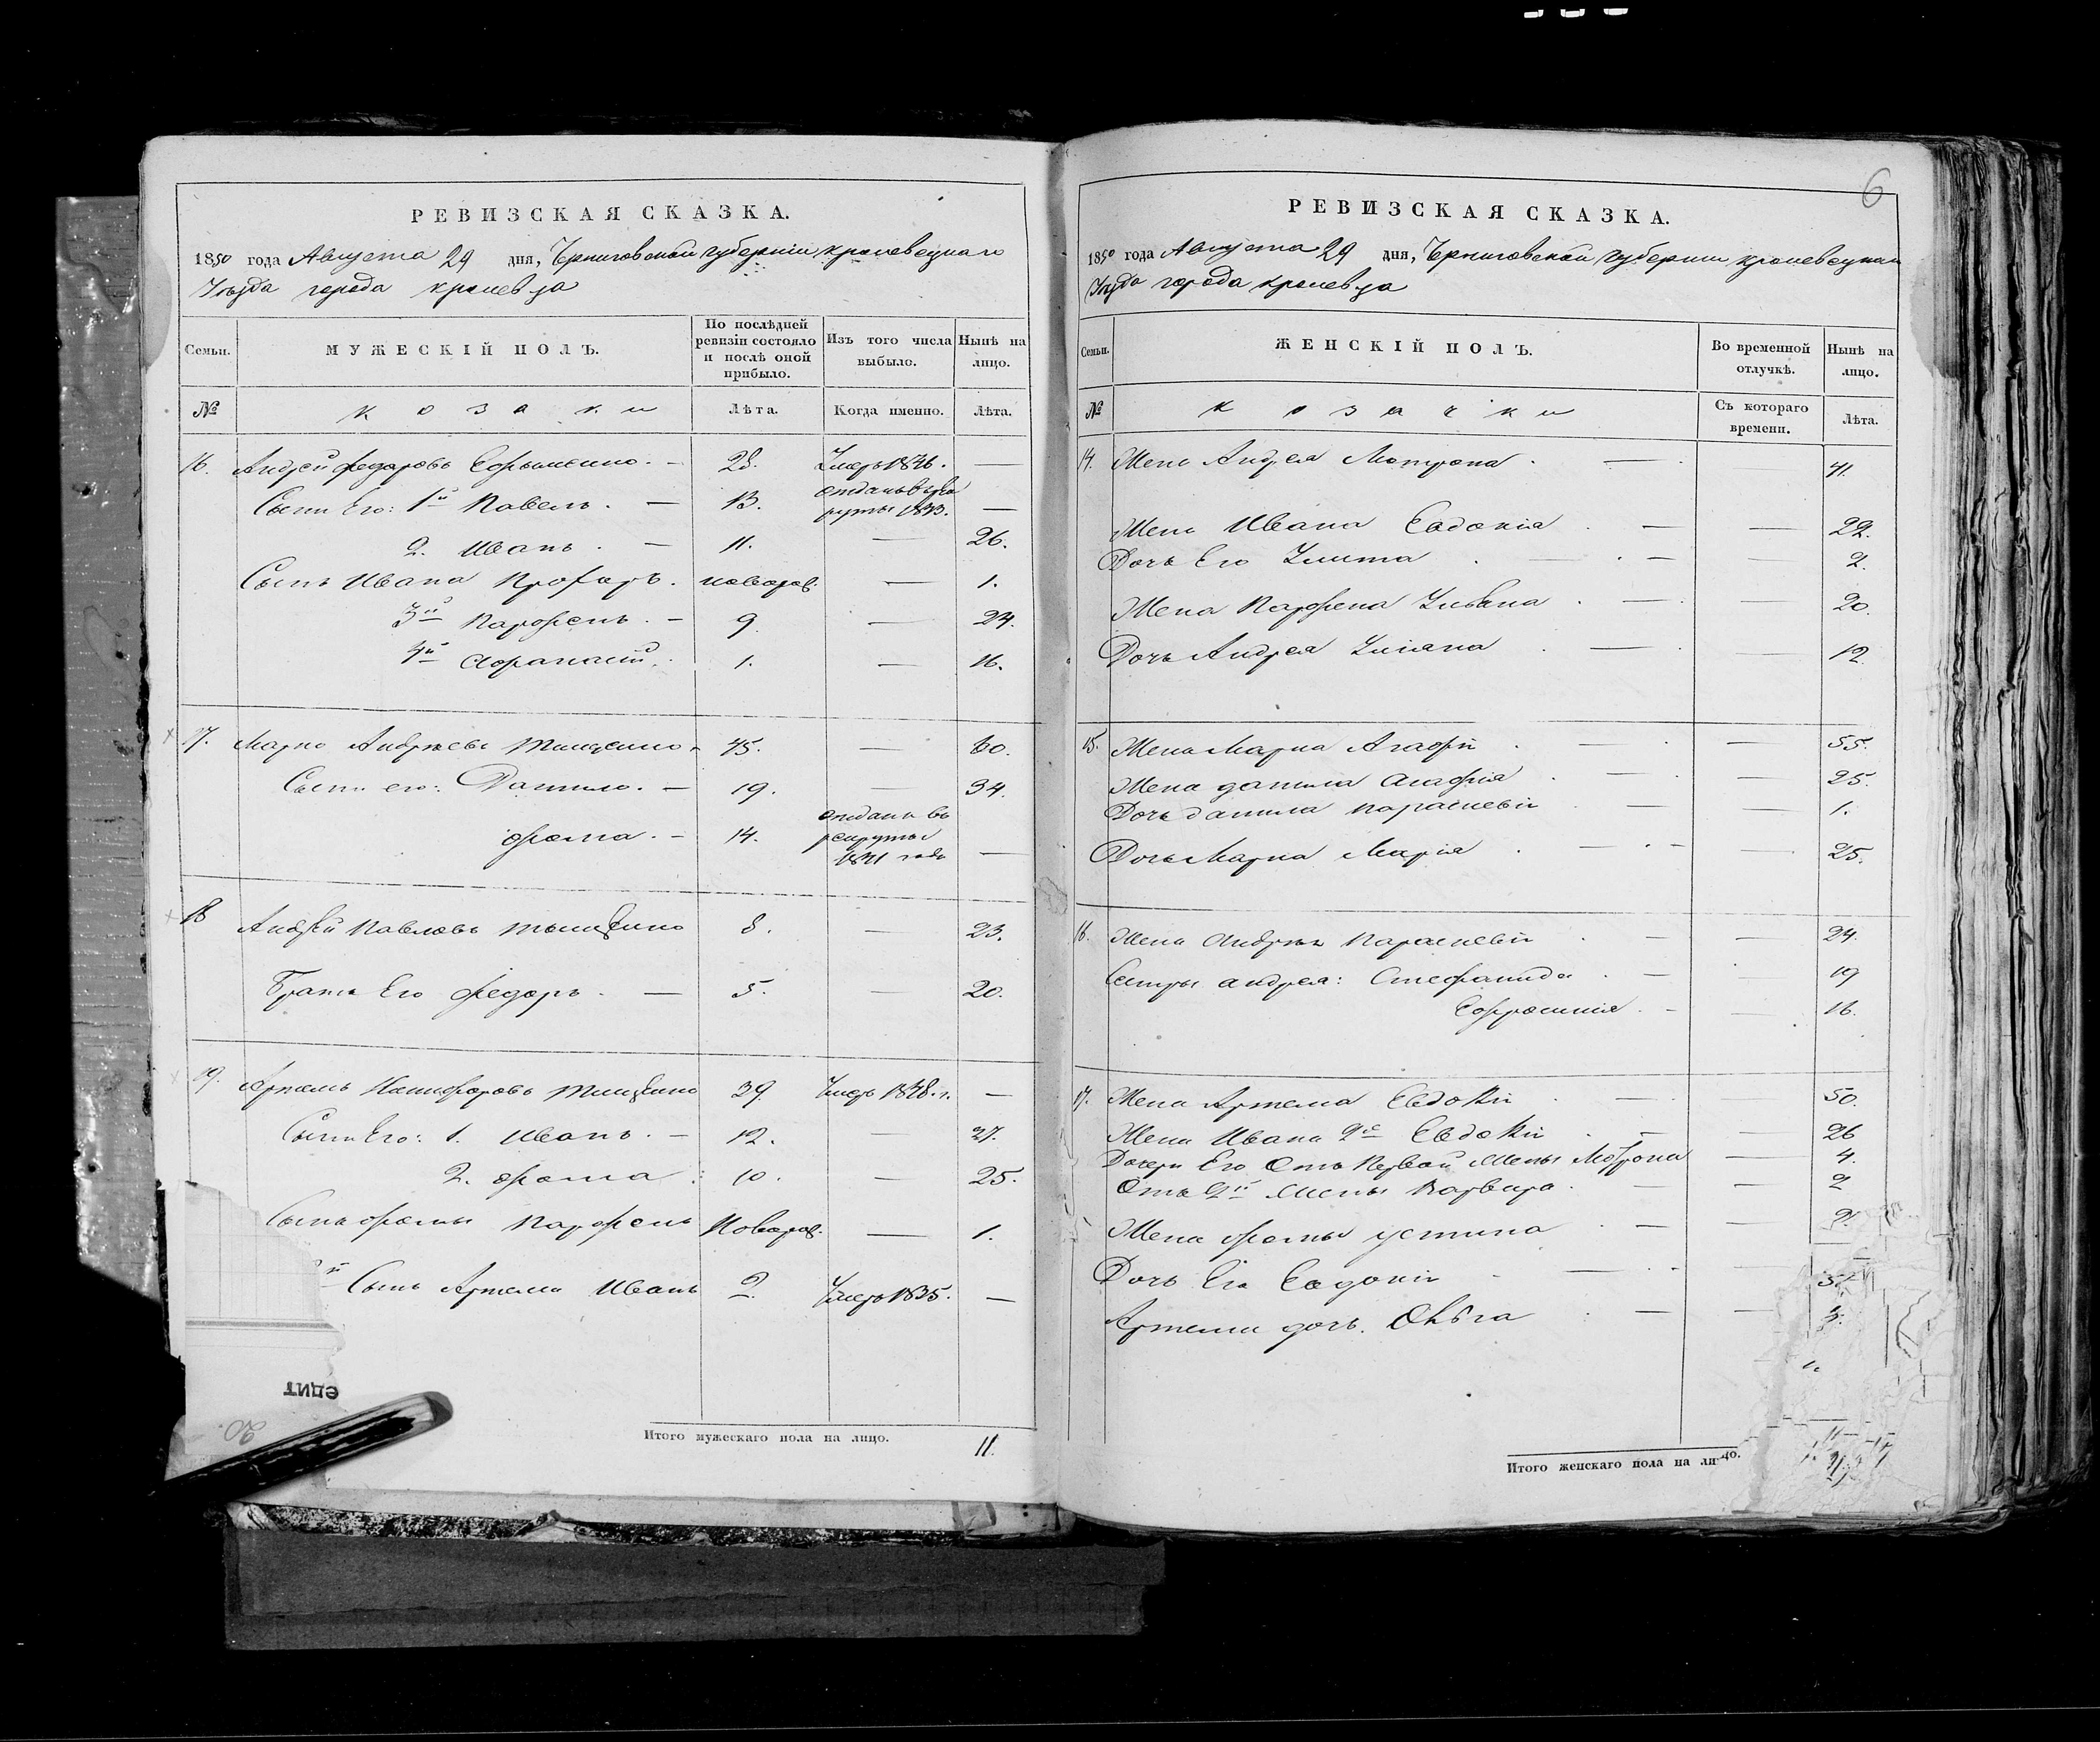 РЕВИЗСКАЯ СКАЗКА.
1850 года Августа 29 дня, Черниговской губерніи кролевецкаго
Уѣзда города кролевца
Семьи.
МУЖЕСКІЙ ПОЛЪ.
По послѣдней ревизіи состояло и послѣ оной прибыло.
Изъ того числа выбыло.
Нынѣ на лицо.
№
козаки
Лѣта.
Когда именно.
Лѣта.
16. Андрей федоровъ 28. Умеръ 1846. —
Сыны Его: 1й Павелъ. — 13. отданъ въ рекруты 1843. —
2. Иванъ. — 11. — 26.
Сынъ Ивана Прохоръ. новорож. — 1.
3й Парфенъ. — 9. — 24.
4й Афанасій. 1. — 16.
17. Марко Андреевъ Тищенко 45. — 60.
Сыны его: Данило. — 19. — 34.
фома. — 14. отданъ въ рекруты 1841 года —
18 Андрей Павловъ тищенко 8. — 23.
Братъ Его федоръ. — 5. — 20.
19. Артемъ Никифоровъ тищенко 39. Умеръ 1848. г. —
Сыны Его: 1. Иванъ. — 12. — 27.
2. фома 10. — 25.
Сынъ фомы Парфенъ Новорож. — 1.
й Сынъ Артема Иванъ 2. Умеръ 1835. —
Итого мужескаго пола на лицо. 11.
едит
20.
6
РЕВИЗСКАЯ СКАЗКА.
1850 года Августа 29 дня, Черниговской губерніи кролевецкаго
Уѣзда города кролевца
Семьи.
ЖЕНСКІЙ ПОЛЪ.
Во временной отлучкѣ.
Нынѣ на лицо.
№
козачки
Съ котораго времени.
Лѣта.
14. Жена Андрея Мотрона. — 41.
Жена Ивана Евдокія. — — 22.
Дочь Его Улита. — — 2.
Жена Парфена Ульяна. — — 20.
Дочь Андрея Уліяна. — — 12.
15. Жена Марка Агафія. — — 55.
Жена данила Агафія. — — 25.
Дочь данила парасковія — — 1.
Дочь Марка Марія. — — 25.
16. Жена Андрея Парасковія. — — 24.
Сестры андрея: Стефанида. — — 19
Ефросинія. — — 16.
17. Жена Артема Евдокія. — 50.
Жена Ивана 2я Евдокія. — — 26
Дочери Его Отъ Первой Жены Мотрона — 4.
Отъ 2й Жены Варвара. — — 2
Жена фомы устина. — —
Дочь Его Евдокія — —
Артема дочь. Ольга — —
Итого женскаго пола на лицо.